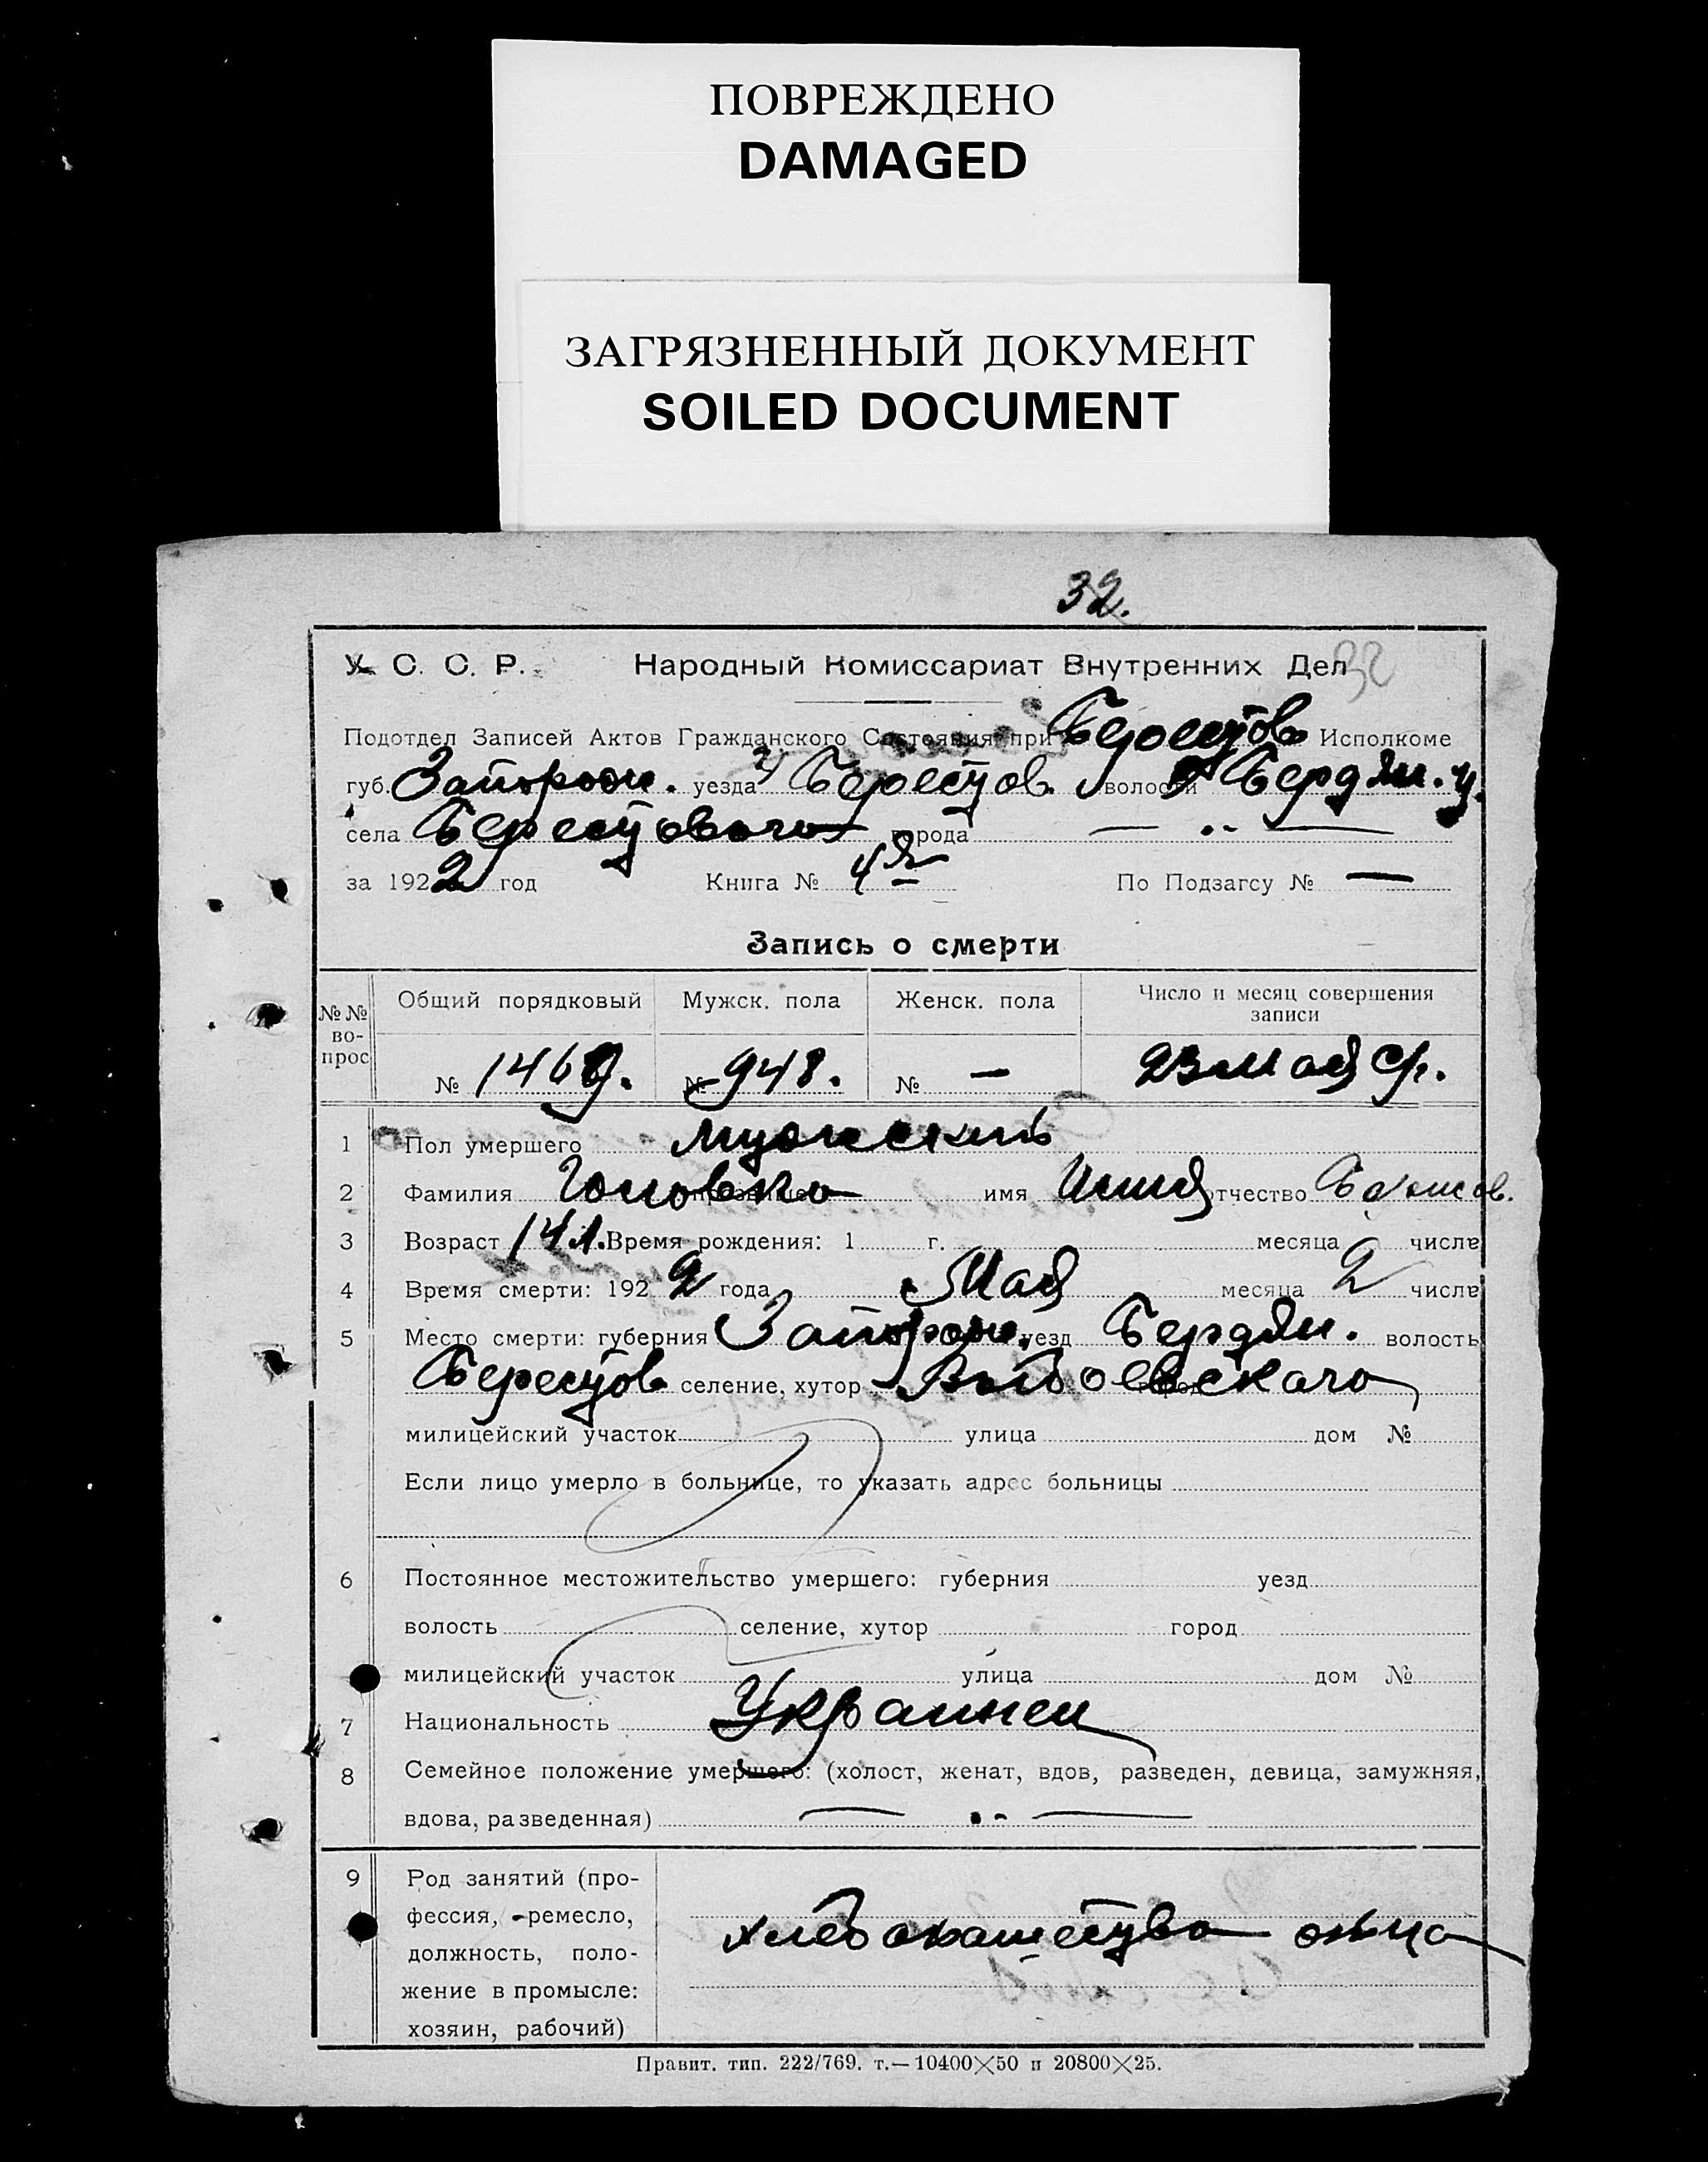 ПОВРЕЖДЕНО
DAMAGED
ЗАГРЯЗНЕННЫЙ ДОКУМЕНТ
SOILED DOCUMENT
32.
У. С. С. Р. Народный Комиссариат Внутренних Дел 32
Подотдел Записей Актов Гражданского Состояния при Берестов Исполкоме
губ. Запорож. уезда Берестов. волости Бердян. у.
села Берестоваго города — „ —
за 1922 год Книга № 4й По Подзагсу № —
Запись о смерти
№№ вопрос Общий порядковый Мужск. пола Женск. пола Число и месяц совершения записи
№ № 948. № — 23 мая
1 Пол умершего мужский
2 Фамилия прозвище имя отчество
3 Возраст 14 л. Время рождения: 1 г. месяца числа
4 Время смерти: 1922 года Мая месяца 2 числа
5 Место смерти: губерния Запорож. уезд Бердян. волость
Берестов селение, хутор город
милицейский участок улица дом №
Если лицо умерло в больнице, то указать адрес больницы
6 Постоянное местожительство умершего: губерния уезд
волость селение, хутор город
милицейский участок улица дом №
7 Национальность Украинец
8 Семейное положение умершего: (холост, женат, вдов, разведен, девица, замужняя,
вдова, разведенная) — „ —
9 Род занятий (про-
фессия, ремесло,
должность, поло-
жение в промысле:
хозяин, рабочий)
хлебопашество отца
Правит. тип. 222/769. т.—10400×50 и 20800×25.